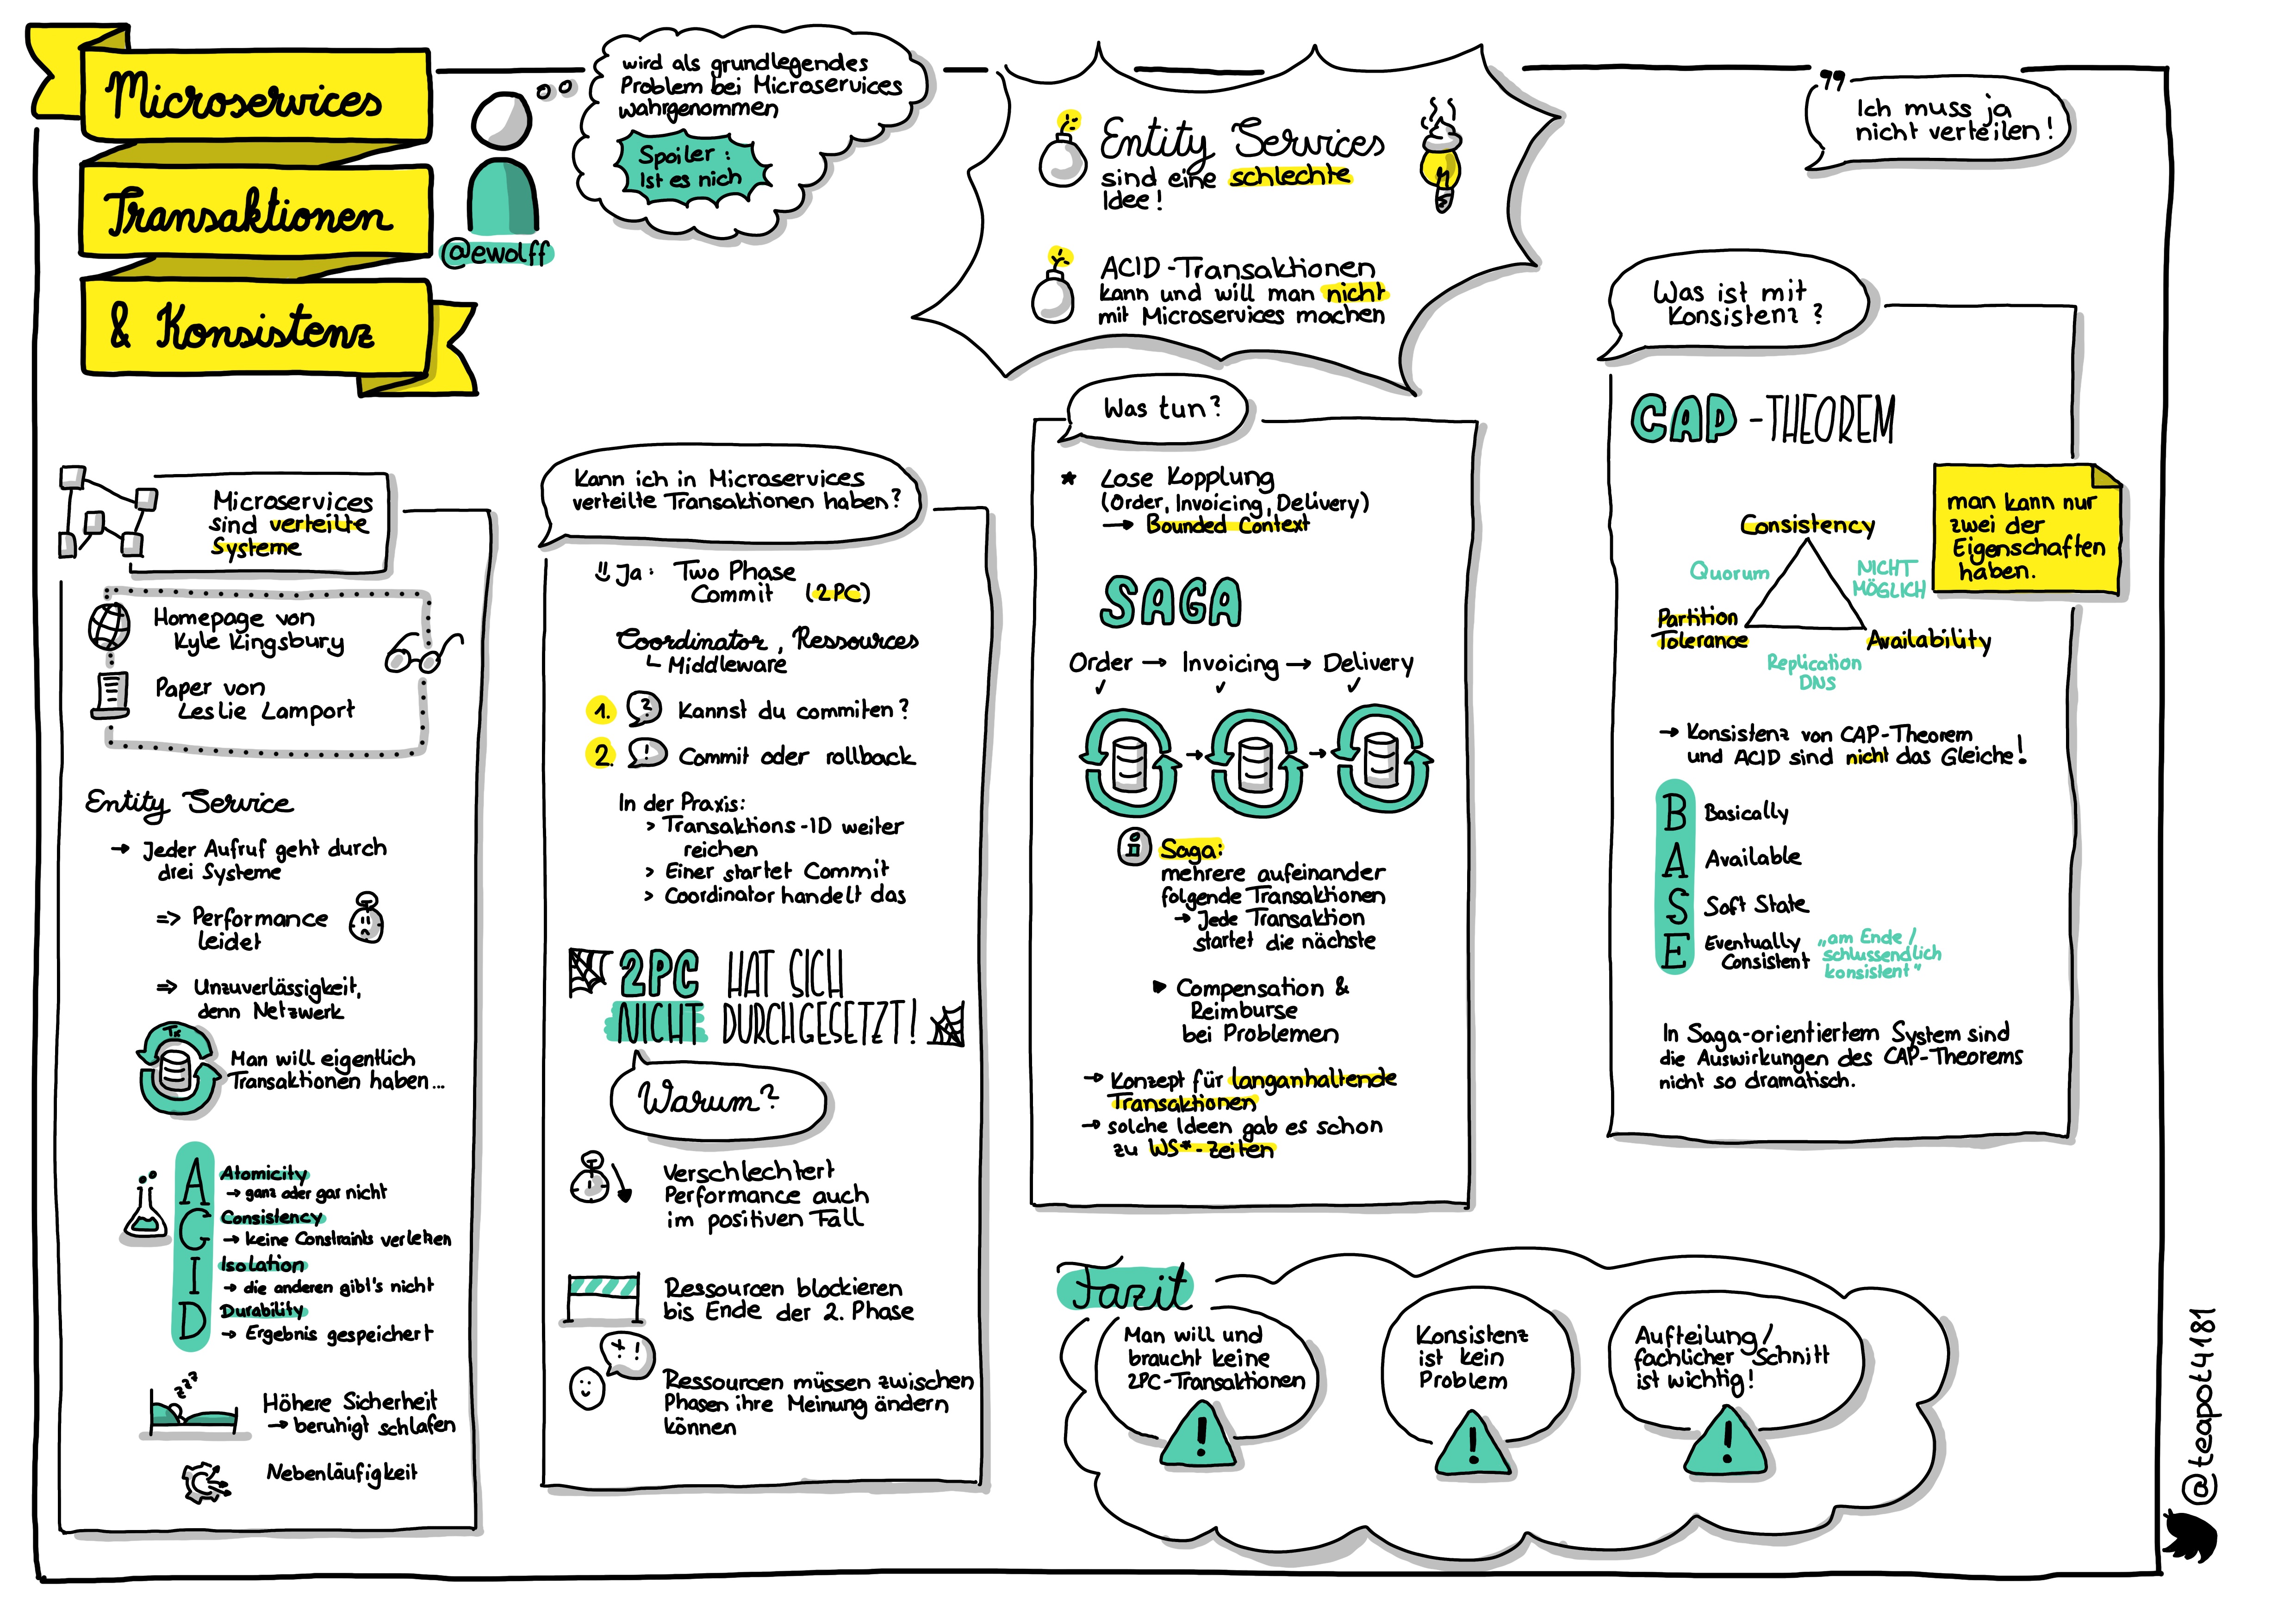 Microservices
Transaktionen
& Konsistenz
@ewolff
wird als grundlegendes
Problem bei Microservices
wahrgenommen
Spoiler:
Ist es nich
Entity Services
sind eine schlechte
Idee!
ACID-Transaktionen
kann und will man nicht
mit Microservices machen
Ich muss ja
nicht verteilen!
Microservices
sind verteilte
Systeme
Homepage von
Kyle Kingsbury
Paper von
Leslie Lamport
Entity Service
→ Jeder Aufruf geht durch
drei Systeme
=> Performance
leidet
=> Unzuverlässigkeit,
denn Netzwerk
Tx
Man will eigentlich
Transaktionen haben...
A
Atomicity
→ ganz oder gar nicht
C
Consistency
→ keine Constraints verletzen
I
Isolation
→ die anderen gibt's nicht
D
Durability
→ Ergebnis gespeichert
zzz
Höhere Sicherheit
→ beruhigt schlafen
Nebenläufigkeit
Kann ich in Microservices
verteilte Transaktionen haben?
Ja: Two Phase
Commit (2PC)
Coordinator, Ressources
Middleware
1. ? Kannst du commiten?
2. ! Commit oder rollback
In der Praxis:
> Transaktions-ID weiter
reichen
> Einer startet Commit
> Coordinator handelt das
2PC HAT SICH
NICHT DURCHGESETZT!
Warum?
Verschlechtert
Performance auch
im positiven Fall
Ressourcen blockieren
bis Ende der 2. Phase
Ressourcen müssen zwischen
Phasen ihre Meinung ändern
können
Was tun?
* Lose Kopplung
(Order, Invoicing, Delivery)
→ Bounded Context
SAGA
Order → Invoicing → Delivery
✓ ✓ ✓
i Saga:
mehrere aufeinander
folgende Transaktionen
→ Jede Transaktion
startet die nächste
▶ Compensation &
Reimburse
bei Problemen
→ Konzept für langanhaltende
Transaktionen
→ solche Ideen gab es schon
zu WS*-Zeiten
Was ist mit
Konsistenz?
CAP-THEOREM
man kann nur
zwei der
Eigenschaften
haben.
Consistency
Quorum
NICHT
MÖGLICH
Partition
Tolerance
Availability
Replication
DNS
→ Konsistenz von CAP-Theorem
und ACID sind nicht das Gleiche!
B Basically
A Available
S Soft State
E Eventually
Consistent
„am Ende/
schlussendlich
konsistent"
In Saga-orientiertem System sind
die Auswirkungen des CAP-Theorems
nicht so dramatisch.
Fazit
Man will und
braucht keine
2PC-Transaktionen
!
Konsistenz
ist kein
Problem
!
Aufteilung/
fachlicher Schnitt
ist wichtig!
!
@teapot4181